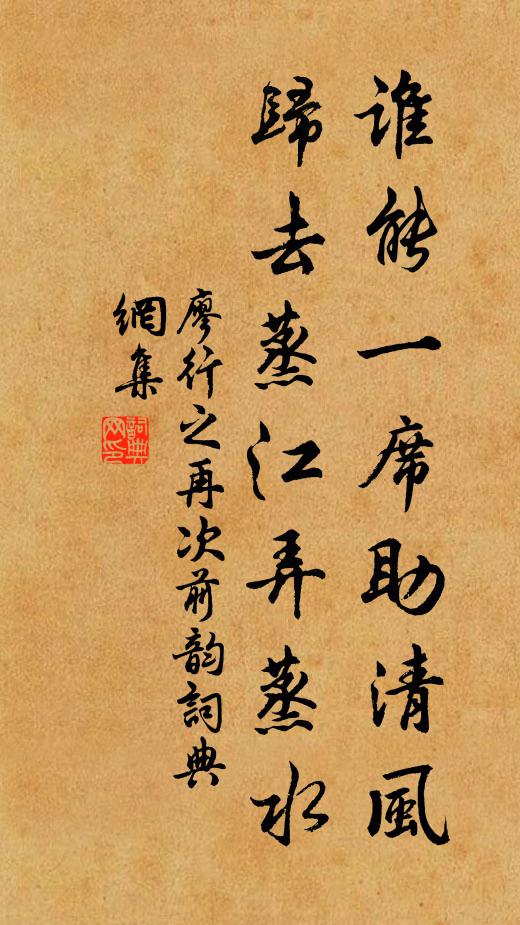 誰能一席助清風
歸去蒸江弄蒸水
廖行之再次前韵詞典
網集
詞典網印